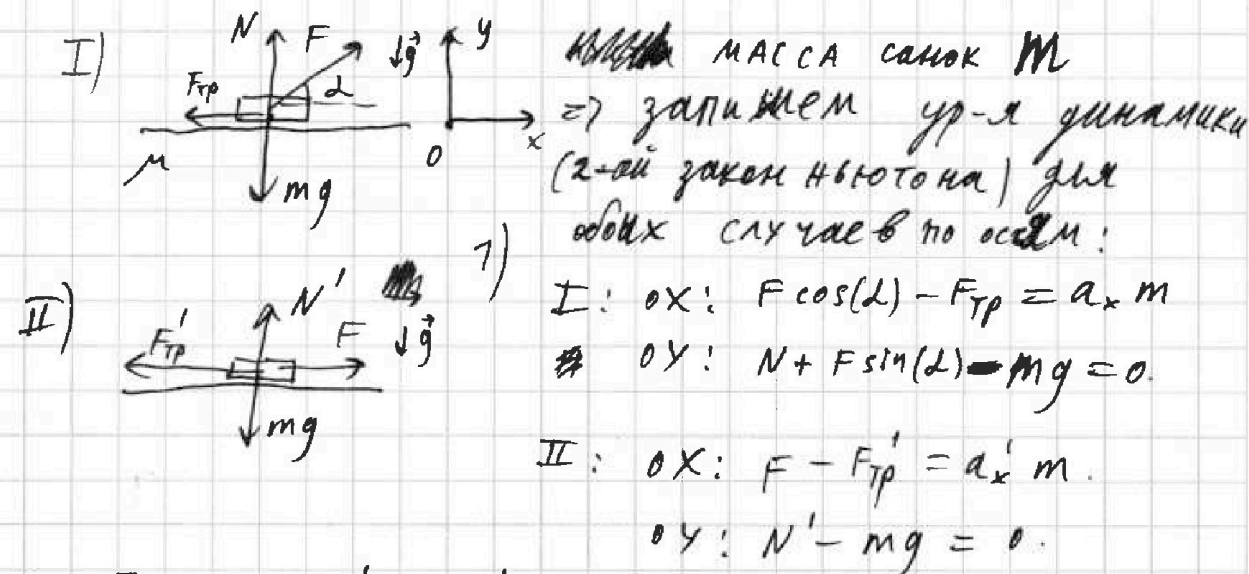 I)
N F ↓g⃗ y
Fтр α
μ 0 x
mg
масса санок m
=> запишем ур-я динамики
(2-ой закон Ньютона) для
обоих случаев по осям:
II)
N'
F'тр F ↓g⃗
mg
1)
I: OX: F cos(α) - Fтр = aₓ m
OY: N + F sin(α) - mg = 0.
II: OX: F - F'тр = a'ₓ m.
OY: N' - mg = 0.